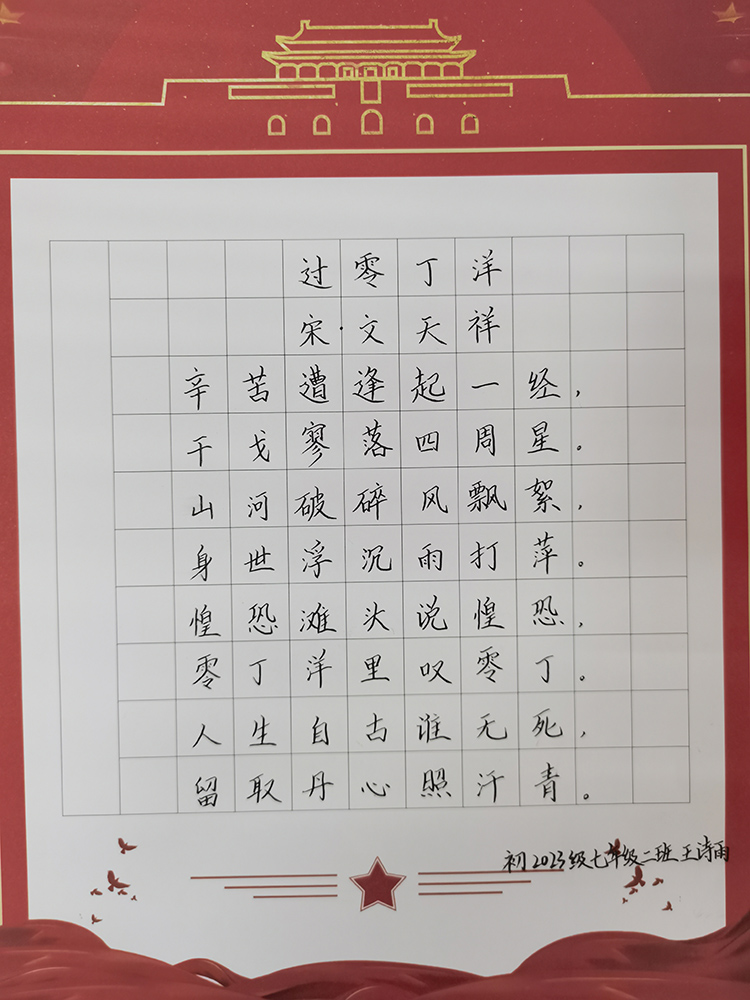 过零丁洋
宋·文天祥
辛苦遭逢起一经，
干戈寥落四周星。
山河破碎风飘絮，
身世浮沉雨打萍。
惶恐滩头说惶恐，
零丁洋里叹零丁。
人生自古谁无死，
留取丹心照汗青。
初2023级七年级二班王诗雨